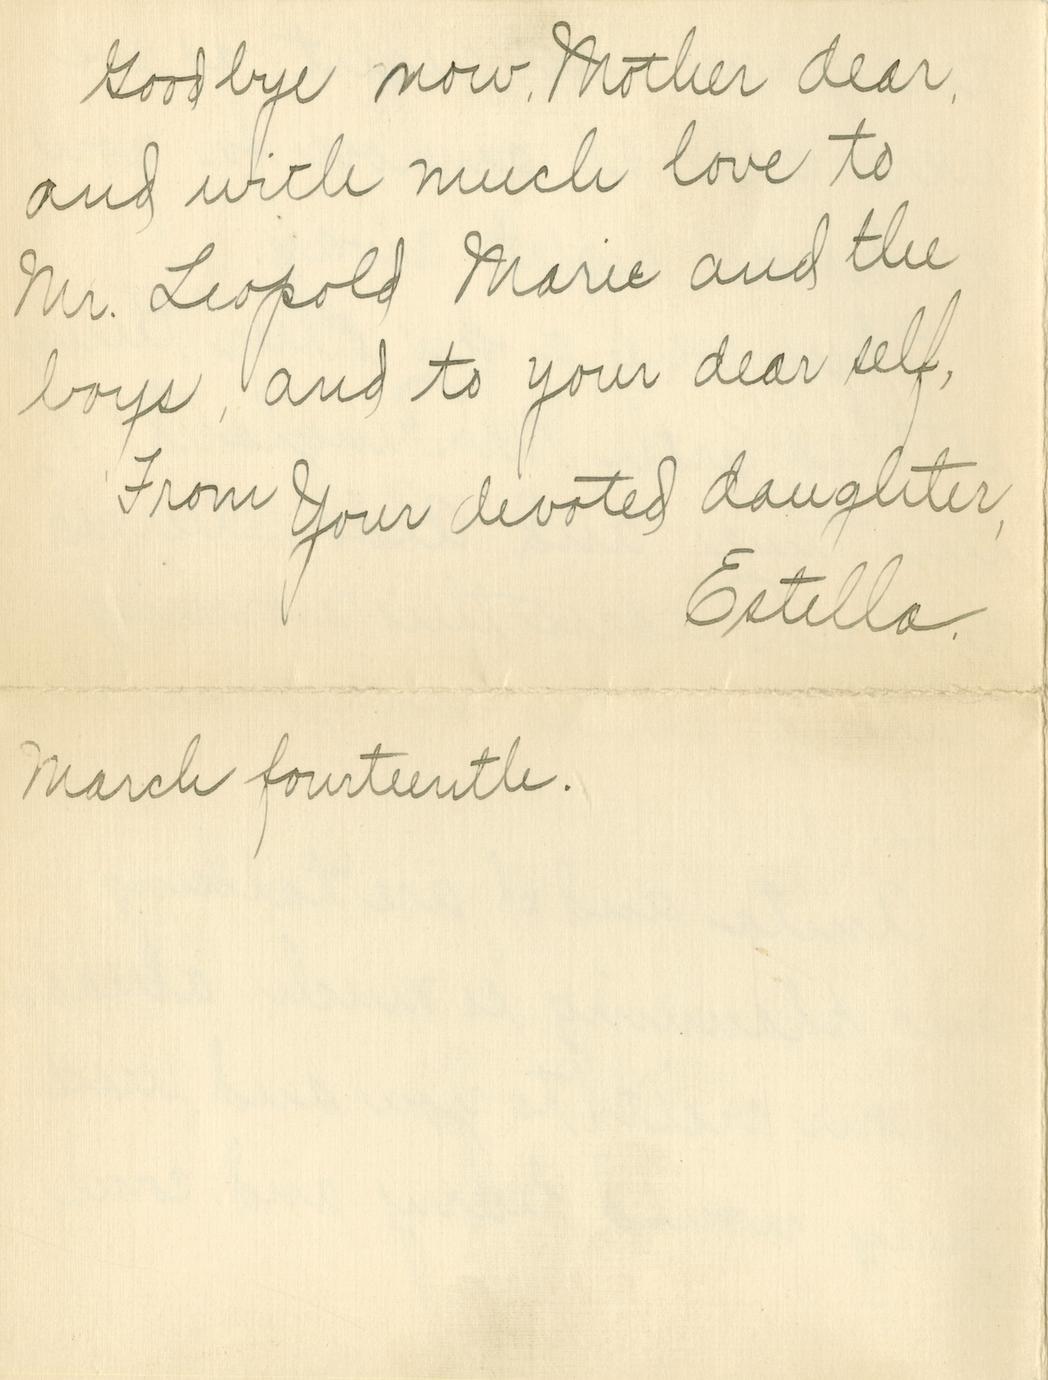 Goodbye now, Mother dear,
and with much love to
Mr. Leopold Marie and the
boys, and to your dear self,
From Your devoted daughter,
Estella.
March fourteenth.